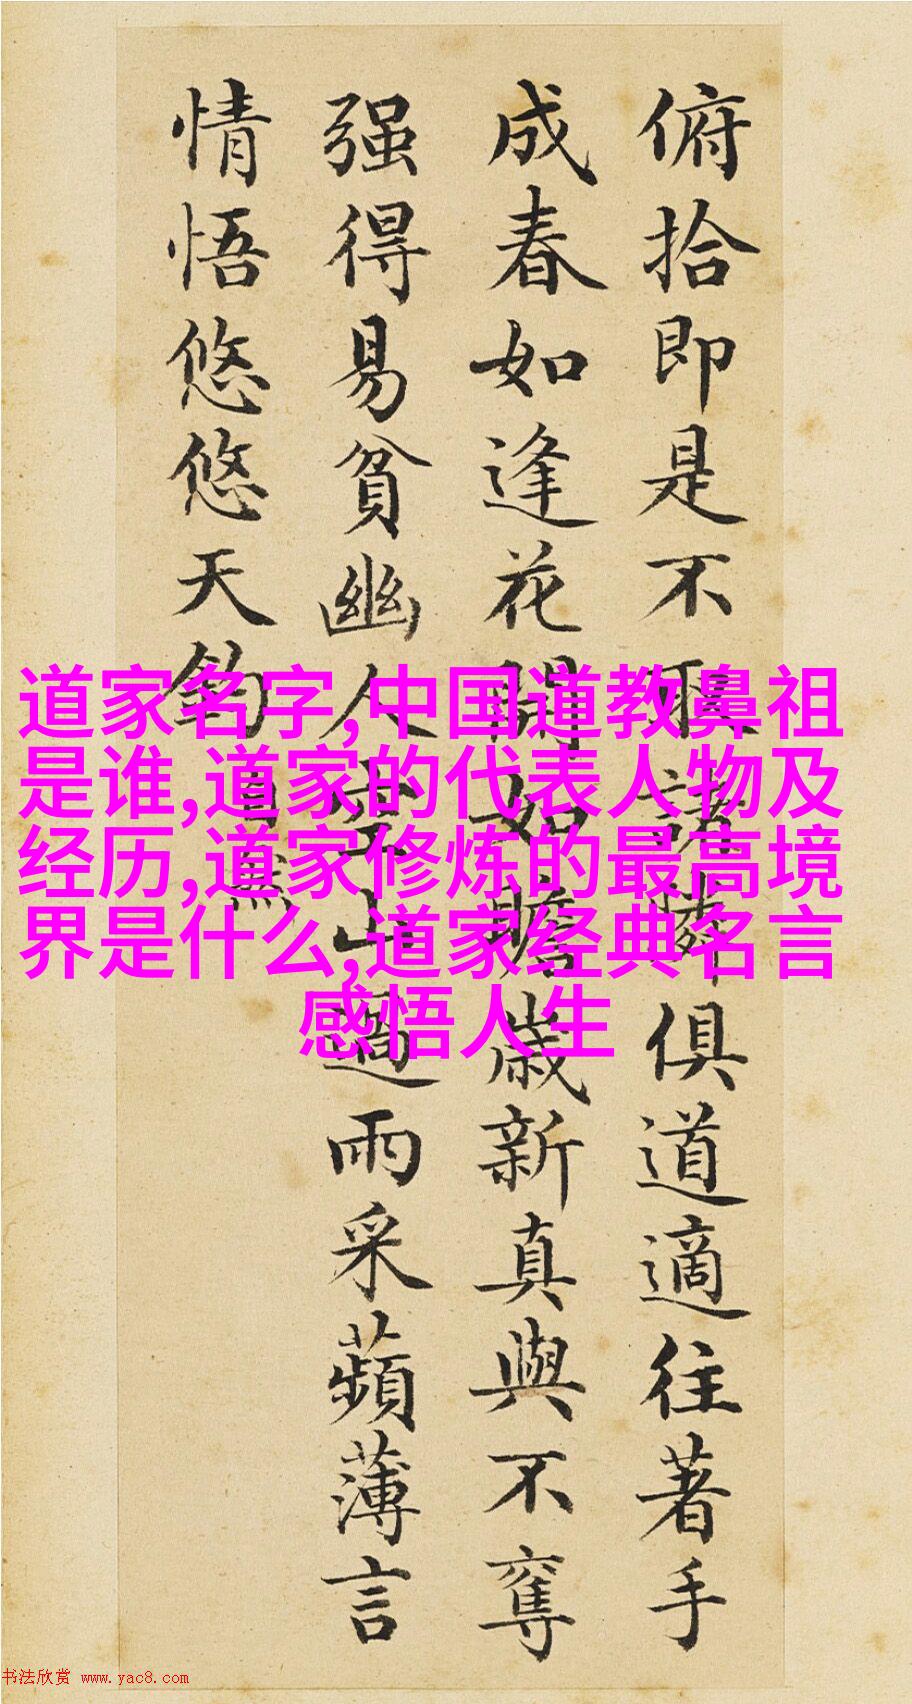 俯拾即是不取諸隣俱道適往著手
成春如逢花開如瞻歳新真與不奪
强得易貧幽人空山過雨采蘋薄言
情悟悠悠天鈞
自然
道家名字,中国道教鼻祖
是谁,道家的代表人物及
经历,道家修炼的最高境
界是什么,道家经典名言
感悟人生
书法欣赏 www.yac8.com